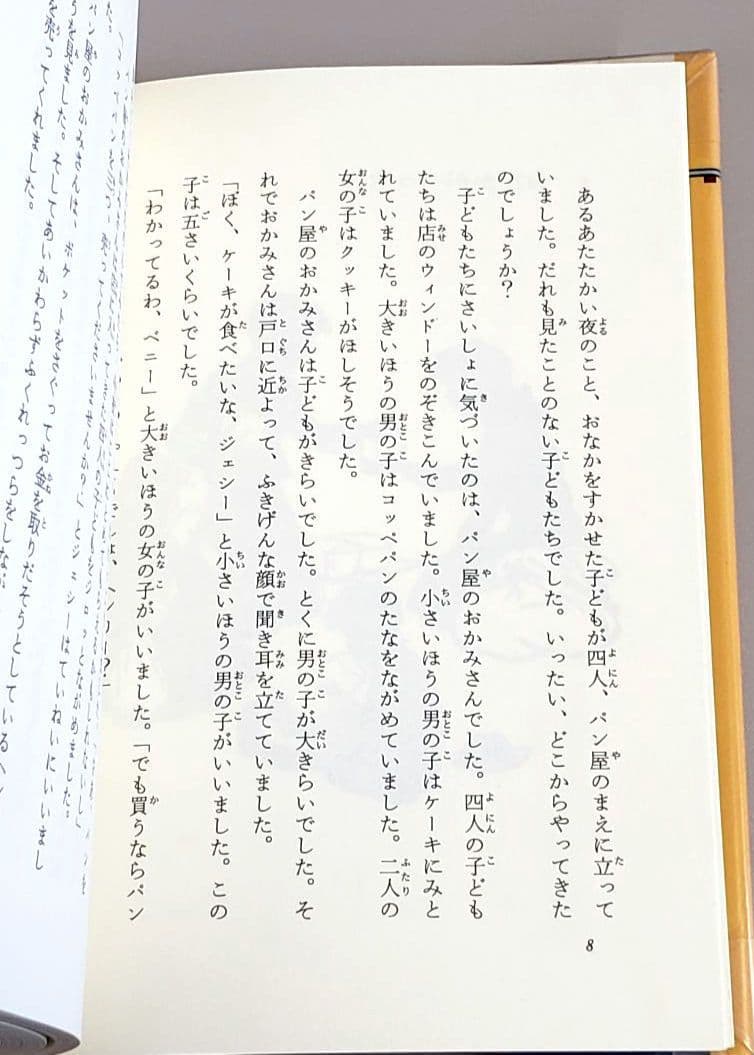 あるあたたかい夜のこと、おなかをすかせた子どもが四人、パン屋のまえに立って
いました。だれも見たことのない子どもたちでした。いったい、どこからやってきた
のでしょうか?
子どもたちにさいしょに気づいたのは、パン屋のおかみさんでした。四人の子ども
たちは店のウィンドーをのぞきこんでいました。小さいほうの男の子はケーキにみと
れていました。大きいほうの男の子はコッペパンのたなをながめていました。二人の
女の子はクッキーがほしそうでした。
パン屋のおかみさんは子どもがきらいでした。とくに男の子が大きらいでした。そ
れでおかみさんは戸口に近よって、ふきげんな顔で聞き耳を立てていました。
「ぼく、ケーキが食べたいな、ジェシー」と小さいほうの男の子がいいました。この
子は五さいくらいでした。
「わかってるわ、ベニー」と大きいほうの女の子がいいました。「でも買うならパン
8
とジェシーはていねいにいいまし
パン屋のおかみさんは、
をジロッとながめました。
うを見ました。そしてあいかわらずふくれっつらをしなが
ポケットをさぐってお金を取りだそうとしているヘン
を売ってくれました。